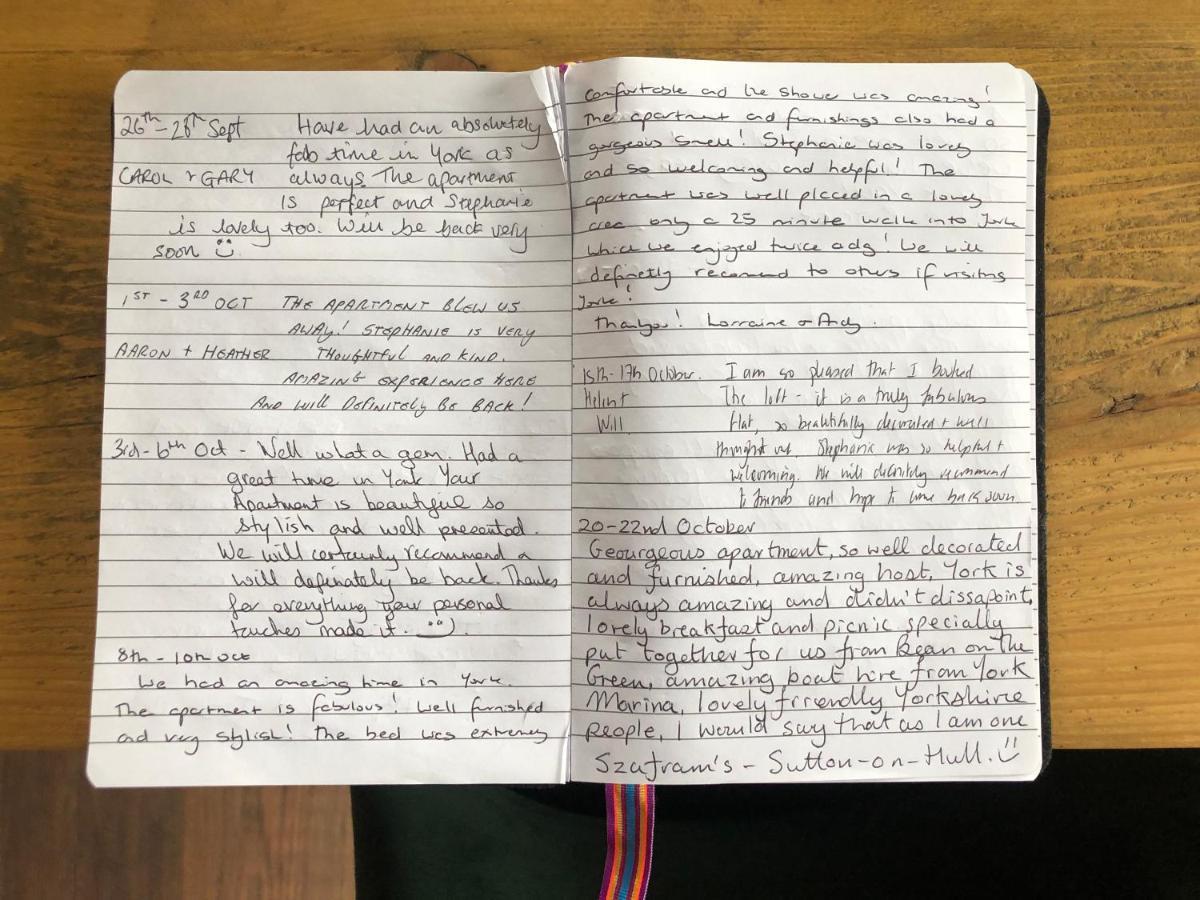 26th - 28th Sept Have had an absolutely
fab time in York as
CAROL + GARY always. The apartment
is perfect and Stephanie
is lovely too. Will be back very
soon
1ST - 3RD OCT THE APARTMENT BLEW US
AWAY! STEPHANIE IS VERY
AARON + HEATHER THOUGHTFUL AND KIND.
AMAZING EXPERIENCE HERE
AND WILL DEFINITELY BE BACK!
3rd - 6th Oct - Well what a gem. Had a
great time in York Your
Apartment is beautiful so
stylish and well presented.
We will certainly recommend a
will definately be back. Thanks
for everything your personal
touches made it.
8th - 10th Oct
We had an amazing time in York.
The apartment is fabulous! Well furnished
and very stylish! The bed was extremely
comfortable and the shower was amazing!
The apartment and furnishings also had a
gorgeous smell! Stephanie was lovely
and so welcoming and helpful! The
apartment was well placed in a lovely
area only a 25 minute walk into York
which we enjoyed twice a day! We will
definetly recomend to others if visiting
York!
Thankyou! Lorraine & Andy.
15th - 17th October. I am so pleased that I booked
Helen + The loft - it is a truly fabulous
Will flat, so beautifully decorated + well
thought out. Stephanie was so helpful +
welcoming. We will definitely recommend
to friends and hope to come back soon
20-22nd October
Geourgeous apartment, so well decorated
and furnished, amazing host, York is
always amazing and didn't dissapoint,
lovely breakfast and picnic specially
put together for us from Bean on the
Green, amazing boat hire from York
Marina, lovely friendly Yorkshire
people, I would say that as I am one
Szafram's - Sutton-on-Hull.